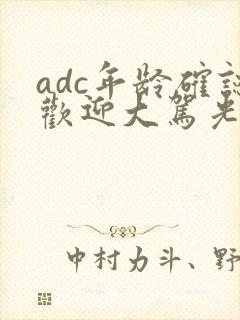 adc年龄確認
歡迎大駕光
中村力斗、野